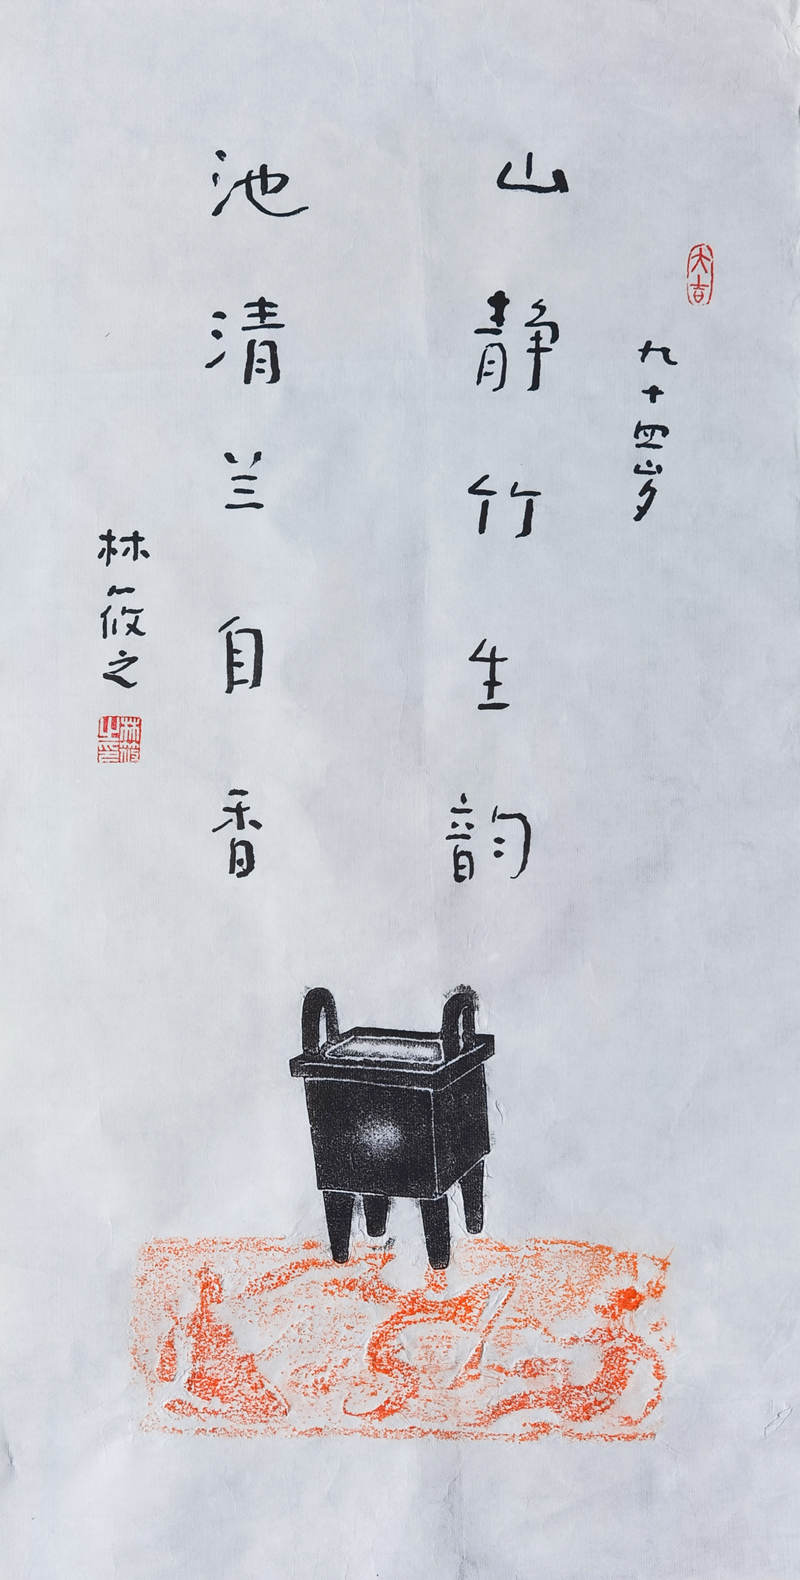 大吉
九十四岁
山静竹生韵
池清兰自香
林筱之
林筱之印